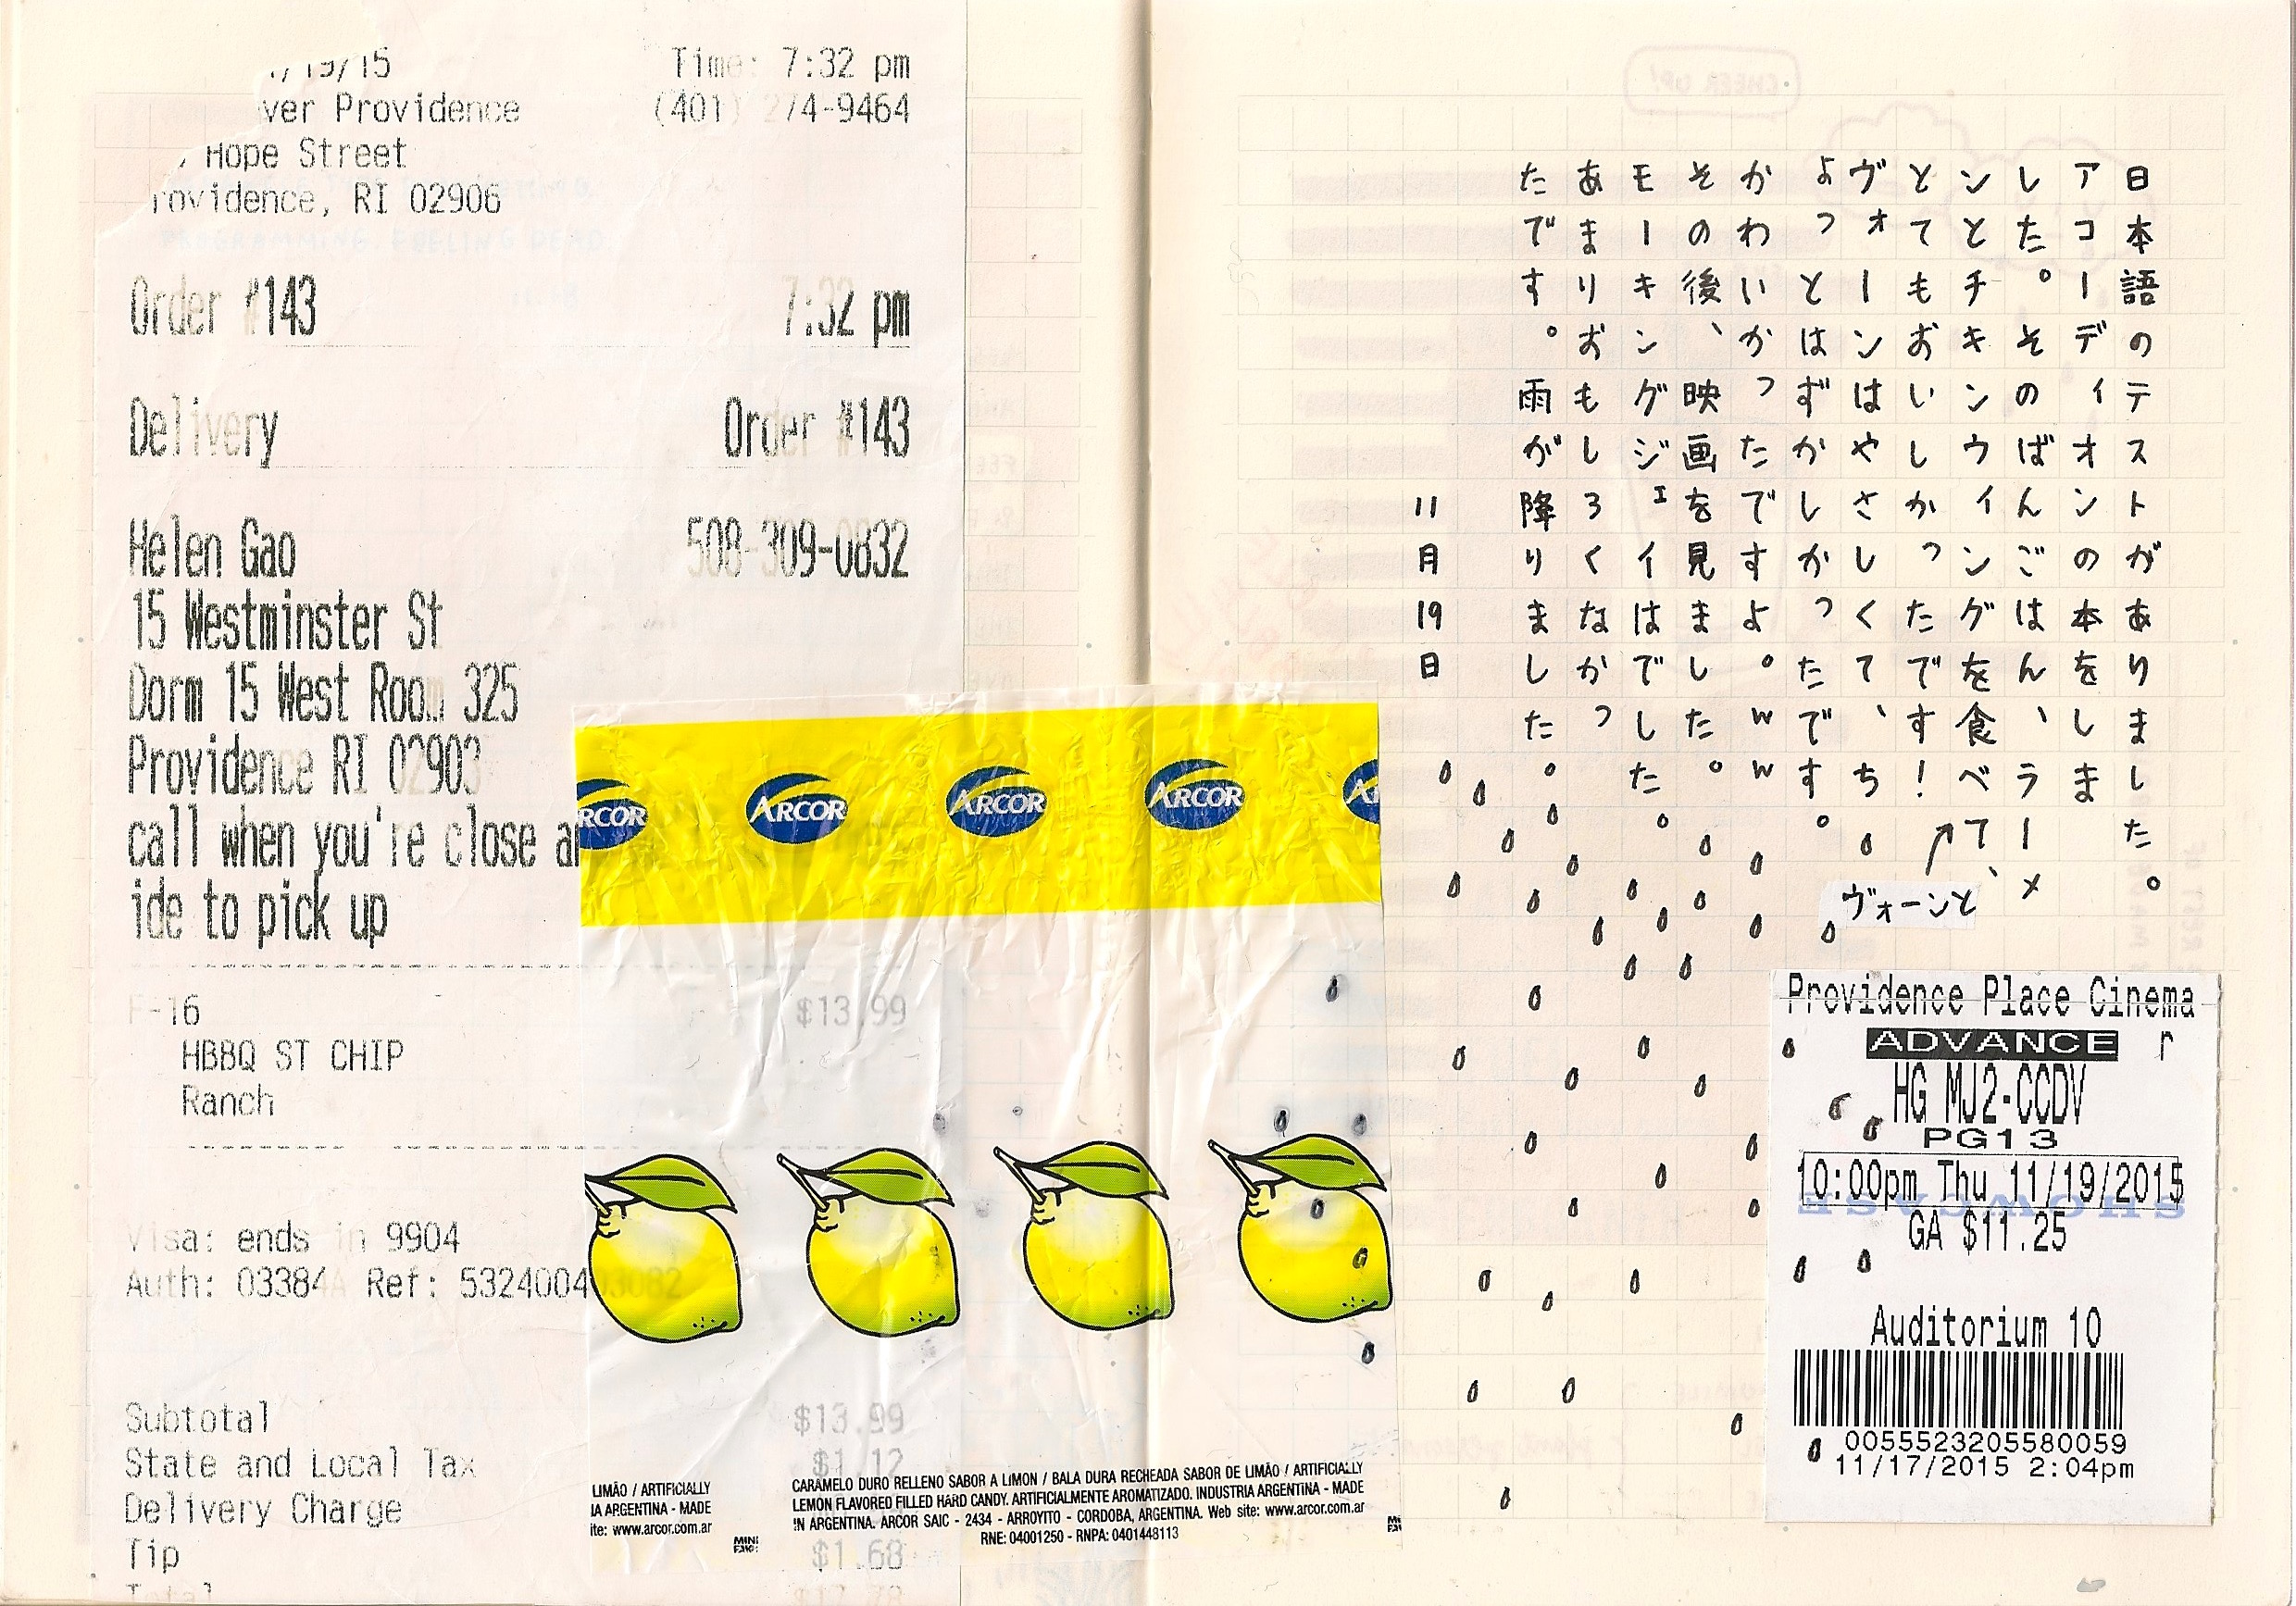 /19/15 Time: 7:32 pm
ver Providence (401) 274-9464
Hope Street
rovidence, RI 02906
Order #143 7:32 pm
Delivery Order #143
Helen Gao 508-309-0832
15 Westminster St
Dorm 15 West Room 325
Providence RI 02903
call when you're close
ide to pick up
F-16 $13.99
HBBQ ST CHIP
Ranch
Visa: ends in 9904
Auth: 03384A Ref: 532400403082
Subtotal $13.99
State and Local Tax $1.12
Delivery Charge
Tip $1.68
Total
ARCOR ARCOR ARCOR ARCOR
LIMÃO / ARTIFICIALLY
IA ARGENTINA - MADE
ite: www.arcor.com.ar
MINI
CARAMELO DURO RELLENO SABOR A LIMON / BALA DURA RECHEADA SABOR DE LIMÃO / ARTIFICIALLY
LEMON FLAVORED FILLED HARD CANDY. ARTIFICIALMENTE AROMATIZADO. INDUSTRIA ARGENTINA - MADE
IN ARGENTINA. ARCOR SAIC - 2434 - ARROYITO - CORDOBA, ARGENTINA. Web site: www.arcor.com.ar
RNE: 04001250 - RNPA: 0401448113
CHEER UP!
日本語のテストがありました。
アコーディオンの本をしま
した。そのばんごはん、ラーメ
ンとチキンウイングを食べて、
とてもおいしかったです!
ヴォーンと
ヴォーンはやさしくて、ち
ょっとはずかしかったです。
かわいかったですよ。ww
その後、映画を見ました。
モーキングジェイはでした。
あまりおもしろくなかっ
たです。雨が降りました。
11月19日
Providence Place Cinema
ADVANCE
HG MJ2-CCDV
PG13
10:00pm Thu 11/19/2015
SHOWCASE
GA $11.25
Auditorium 10
0055523205580059
11/17/2015 2:04pm